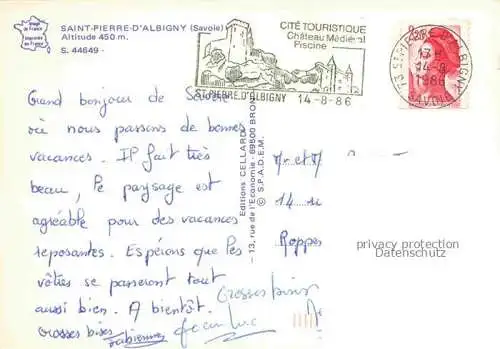 Image de France
Imprimée en France
SAINT-PIERRE-D'ALBIGNY (Savoie)
Altitude 450 m.
S. 44649 -
CITÉ TOURISTIQUE
Château Médiéval
Piscine
ST PIERRE D'ALBIGNY 14-8-86
73 ST PIERRE D'ALBIGNY
14-8
1986
SAVOIE
2,20
Grand bonjour de Savoie
où nous passons de bonnes
vacances. Il fait très
beau, le paysage est
agréable pour des vacances
reposantes. Espérons que les
vôtres se passeront tout
aussi bien. A bientôt.
Grosses bises
Fabienne
Jean Luc
Grosses bises
Editions CELLARD
- 13, rue de l'Economie - 69500 BRON
© S.P.A.D.E.M.
Mr et M
14
Roppe
privacy protection
Datenschutz